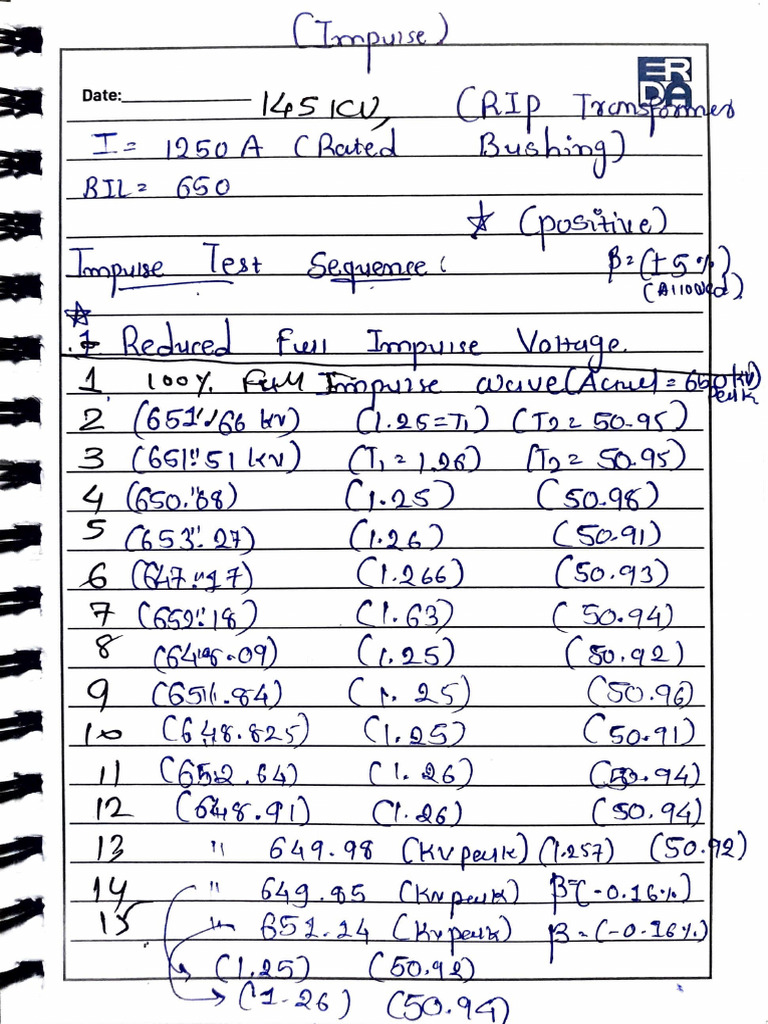 (Impulse)
ERDA
Date: 145 KV, (RIP Transformer
I = 1250 A (Rated Bushing)
BIL = 650
☆ (positive)
Impulse Test Sequence: β = (± 5 %)
(Allowed)
☆
Reduced Full Impulse Voltage.
1 100% Full Impulse wave (Actual = 650 kV) peak
2 (651.66 kv) (1.25 = T1) (T2 = 50.95)
3 (651.51 kv) (T1 = 1.26) (T2 = 50.95)
4 (650.68) (1.25) (50.98)
5 (653.27) (1.26) (50.91)
6 (647.17) (1.266) (50.93)
7 (652.18) (1.63) (50.94)
8 (648.09) (1.25) (50.92)
9 (651.84) (1.25) (50.96)
10 (648.825) (1.25) (50.91)
11 (652.64) (1.26) (50.94)
12 (648.91) (1.26) (50.94)
13 " 649.98 (KV peak) (1.257) (50.92)
14 " 649.85 (KV peak) β = (-0.16%)
15 " 652.24 (KV peak) β = (-0.16%)
(1.25) (50.92)
(1.26) (50.94)